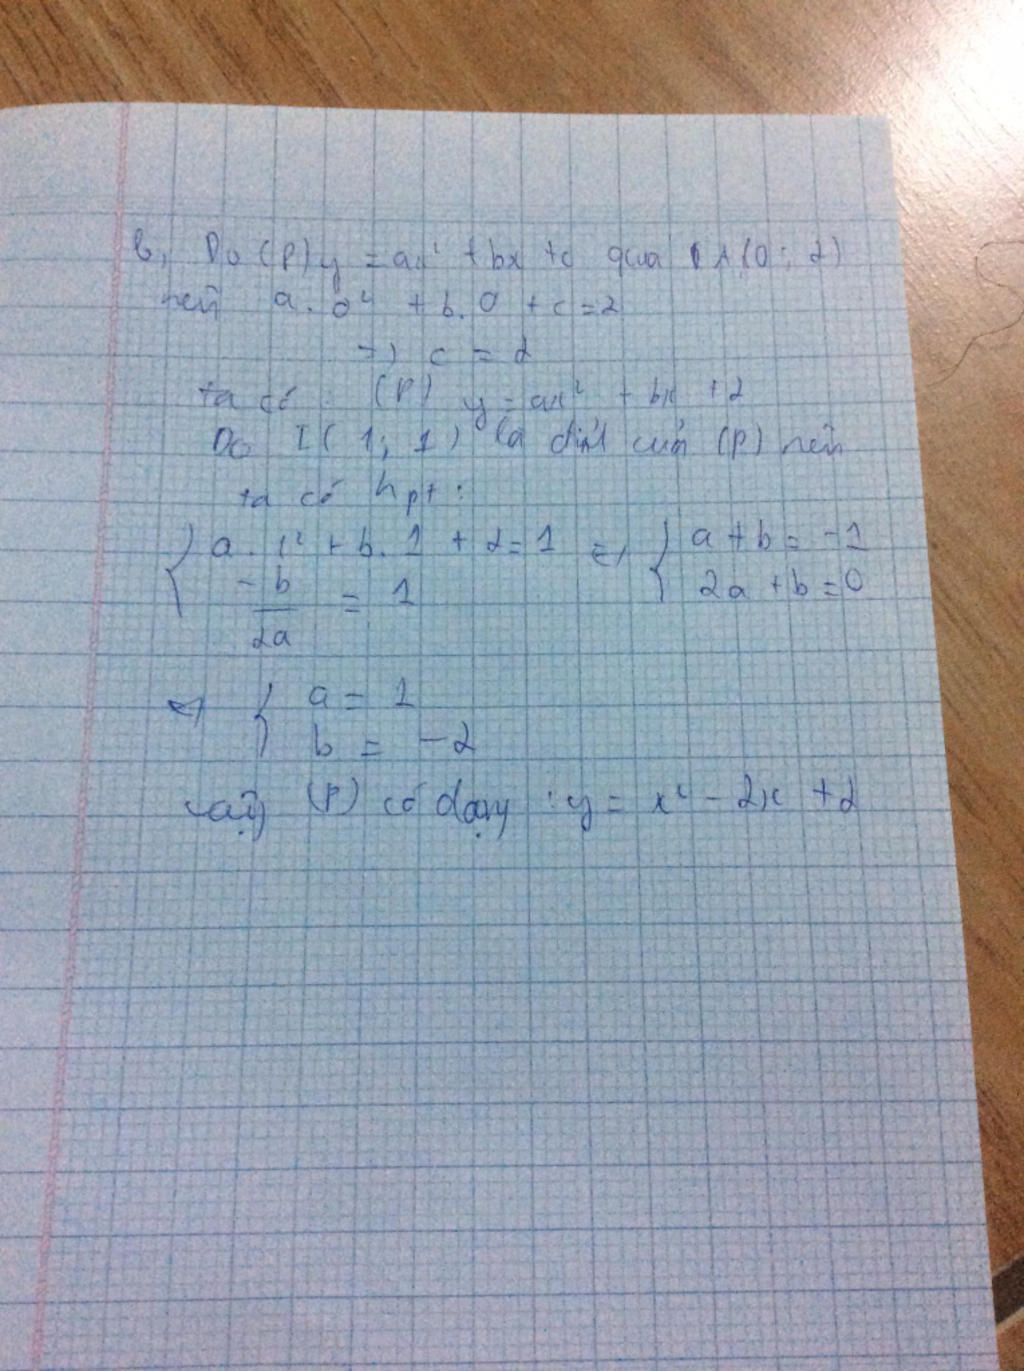 b, Do (P) y = ax² + bx + c qua A(0; 2)
nên a.0² + b.0 + c = 2
=> c = 2
ta có : (P) y = ax² + bx + 2
Do I(1; 1) là đỉnh của (P) nên
ta có hpt :
{ a.1² + b.1 + 2 = 1 <=> { a + b = -1
{ -b/2a = 1 { 2a + b = 0
<=> { a = 1
{ b = -2
Vậy (P) có dạng : y = x² - 2x + 2